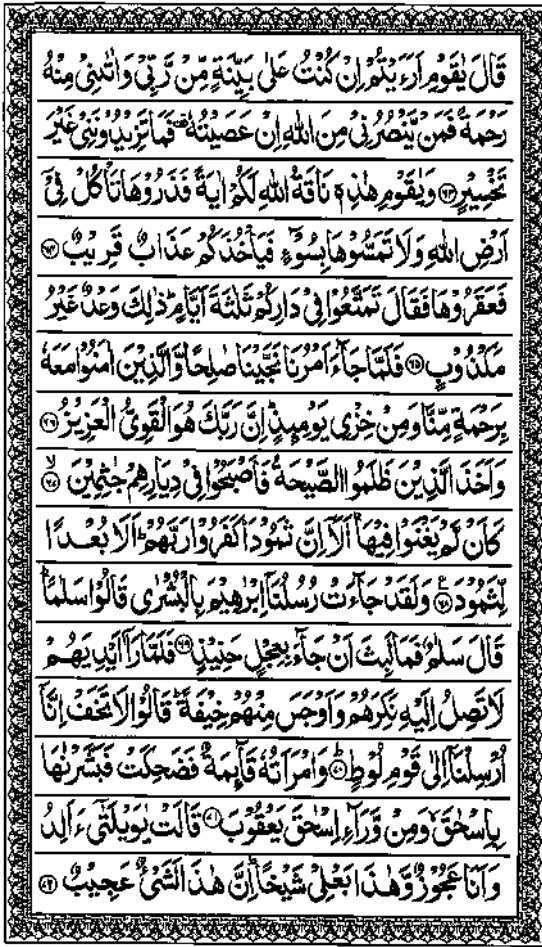 قَالَ يٰقَوْمِ اَرَءَيْتُمْ اِنْ كُنْتُ عَلٰى بَيِّنَةٍ مِّنْ رَّبِّيْ وَاٰتٰىنِيْ مِنْهُ
رَحْمَةً فَمَنْ يَّنْصُرُنِيْ مِنَ اللّٰهِ اِنْ عَصَيْتُهٗ ۫ فَمَا تَزِيْدُوْنَنِيْ غَيْرَ
تَخْسِيْرٍ ﴿۶۳﴾ وَيٰقَوْمِ هٰذِهٖ نَاقَةُ اللّٰهِ لَكُمْ اٰيَةً فَذَرُوْهَا تَاْكُلْ فِيْٓ
اَرْضِ اللّٰهِ وَلَا تَمَسُّوْهَا بِسُوْٓءٍ فَيَاْخُذَكُمْ عَذَابٌ قَرِيْبٌ ﴿۶۴﴾
فَعَقَرُوْهَا فَقَالَ تَمَتَّعُوْا فِيْ دَارِكُمْ ثَلٰثَةَ اَيَّامٍ ؕ ذٰلِكَ وَعْدٌ غَيْرُ
مَكْذُوْبٍ ﴿۶۵﴾ فَلَمَّا جَآءَ اَمْرُنَا نَجَّيْنَا صٰلِحًا وَّالَّذِيْنَ اٰمَنُوْا مَعَهٗ
بِرَحْمَةٍ مِّنَّا وَمِنْ خِزْيِ يَوْمِئِذٍ ؕ اِنَّ رَبَّكَ هُوَ الْقَوِيُّ الْعَزِيْزُ ﴿۶۶﴾
وَاَخَذَ الَّذِيْنَ ظَلَمُوا الصَّيْحَةُ فَاَصْبَحُوْا فِيْ دِيَارِهِمْ جٰثِمِيْنَ ﴿ۙ۶۷﴾
كَاَنْ لَّمْ يَغْنَوْا فِيْهَا ؕ اَلَاۤ اِنَّ ثَمُوْدَا۠ كَفَرُوْا رَبَّهُمْ ؕ اَلَا بُعْدًا
لِّثَمُوْدَ ﴿۶۸﴾ وَلَقَدْ جَآءَتْ رُسُلُنَاۤ اِبْرٰهِيْمَ بِالْبُشْرٰى قَالُوْا سَلٰمًا ؕ
قَالَ سَلٰمٌ فَمَا لَبِثَ اَنْ جَآءَ بِعِجْلٍ حَنِيْذٍ ﴿۶۹﴾ فَلَمَّا رَاٰۤ اَيْدِيَهُمْ
لَا تَصِلُ اِلَيْهِ نَكِرَهُمْ وَاَوْجَسَ مِنْهُمْ خِيْفَةً ؕ قَالُوْا لَا تَخَفْ اِنَّاۤ
اُرْسِلْنَاۤ اِلٰى قَوْمِ لُوْطٍ ﴿ؕ۷۰﴾ وَامْرَاَتُهٗ قَآئِمَةٌ فَضَحِكَتْ فَبَشَّرْنٰهَا
بِاِسْحٰقَ ۙ وَمِنْ وَّرَآءِ اِسْحٰقَ يَعْقُوْبَ ﴿۷۱﴾ قَالَتْ يٰوَيْلَتٰٓى ءَاَلِدُ
وَاَنَا عَجُوْزٌ وَّهٰذَا بَعْلِيْ شَيْخًا ؕ اِنَّ هٰذَا لَشَيْءٌ عَجِيْبٌ ﴿۷۲﴾